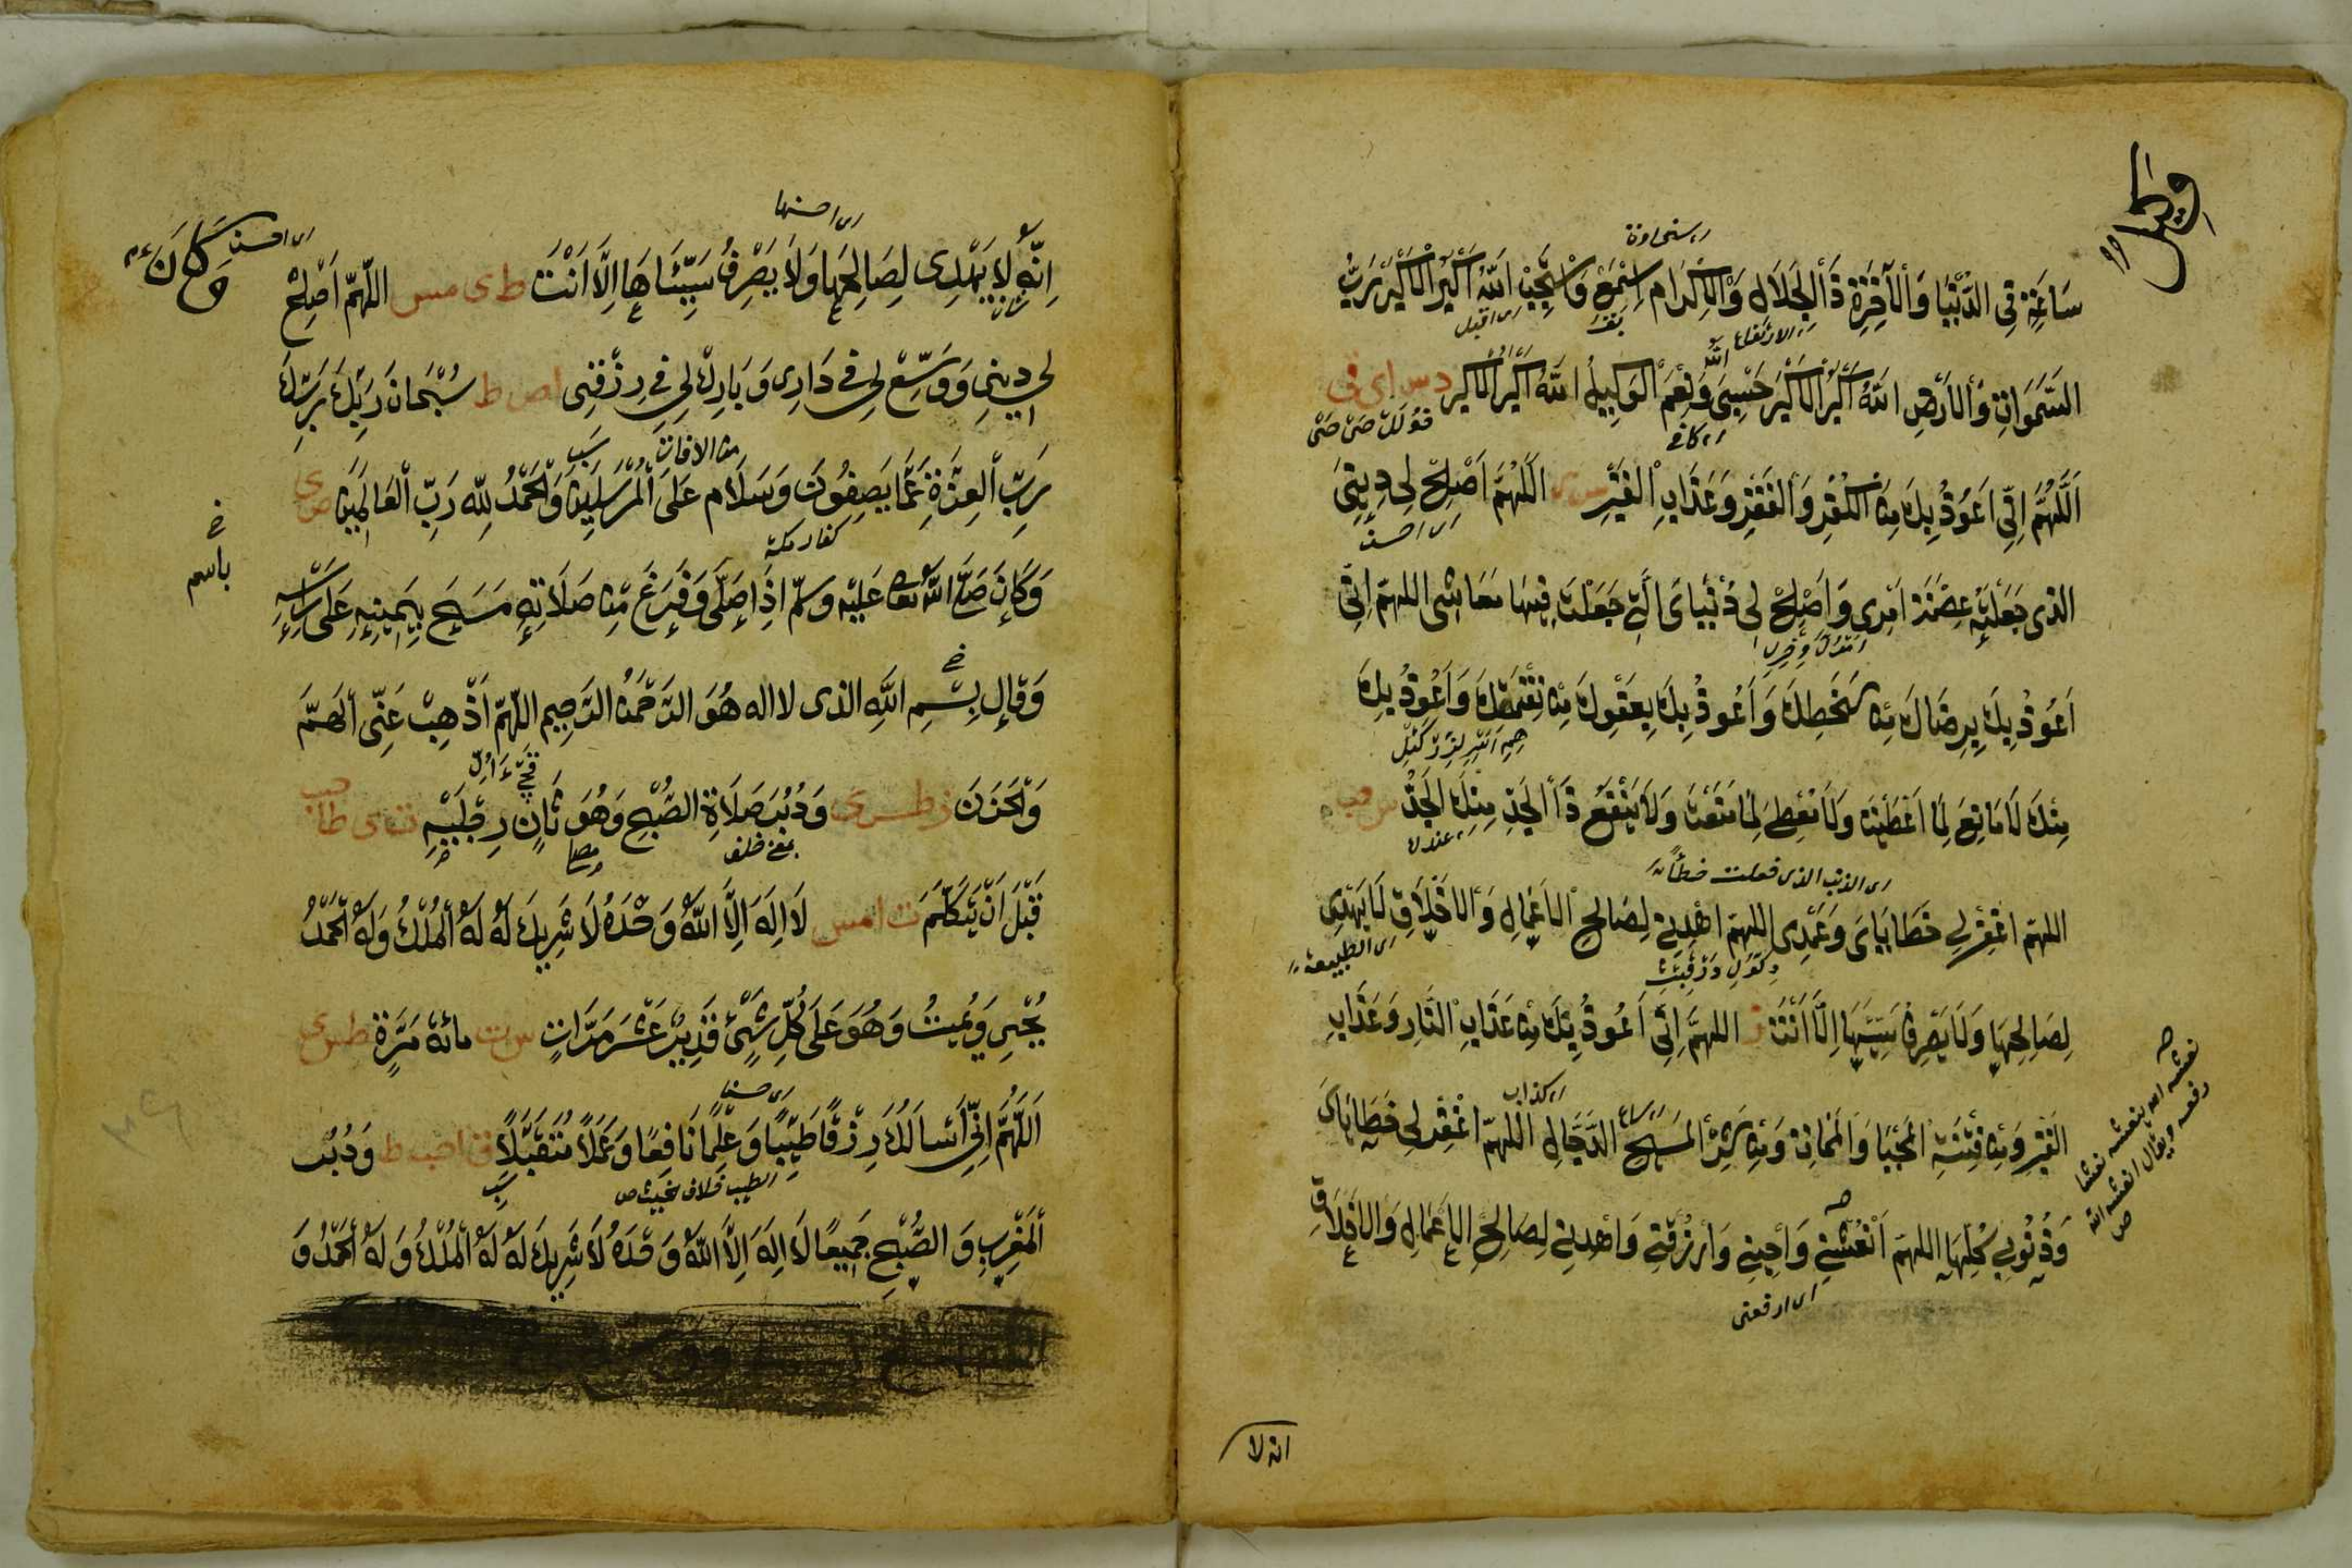 سَاعَةٍ فِي الدُّنْيَا وَالْآخِرَةِ ذَا الْجَلَالِ وَالْإِكْرَامِ اسْمَعْ وَاسْتَجِبْ اَللّٰهُ اَكْبَرُ الْاَكْبَرُ رَبُّ
السَّمٰوَاتِ وَالْاَرْضِ اَللّٰهُ اَكْبَرُ الْاَكْبَرُ حَسْبِيَ اللّٰه وَنِعْمَ الْوَكِيلُ اَللّٰهُ اَكْبَرُ الْاَكْبَر د س ای
اَللّٰهُمَّ اِنِّي اَعُوْذُ بِكَ مِنَ الْكُفْرِ وَالْفَقْرِ وَعَذَابِ الْقَبْرِ س ی اَللّٰهُمَّ اَصْلِحْ لِي دِينِيَ
ای احسن
الذي جَعَلْتَهُ عِصْمَةَ اَمْرِي وَاَصْلِحْ لِي دُنْيَايَ الَّتِي جَعَلْتَ فِيهَا مَعَاشِي اللهمّ اِنِّي
اَعُوْذُ بِكَ بِرِضَاكَ مِنْ سَخَطِكَ وَاَعُوذُ بِكَ بِعَفْوِكَ مِنْ نِقْمَتِكَ وَاَعُوذُ بِكَ
مِنْكَ لَا مَانِعَ لِمَا اَعْطَيْتَ وَلَا مُعْطِيَ لِمَا مَنَعْتَ وَلَا يَنْفَعُ ذَا الْجَدِّ مِنْكَ الْجَدُّ س حب
ای عندك
ای الذنب الذی فعلت خطأ
اللهمّ اغْفِرْ لِي خَطَايَايَ وَعَمْدِي اللهمّ اهْدِنِي لِصَالِحِ الْاَعْمَالِ وَالْاَخْلَاقِ لَا يَهْدِي
ای الطبيعة
لِصَالِحِهَا وَلَا يَصْرِفُ سَيِّئَهَا اِلَّا اَنْتَ ز اللهمَّ اِنِّي اَعُوذُ بِكَ مِنْ عَذَابِ النَّارِ وَعَذَابِ
ای کذاب
الْقَبْرِ وَمِنْ فِتْنَةِ الْمَحْيَا وَالْمَمَاتِ وَمِنْ شَرِّ الْمَسِيحِ الدَّجَّالِ اللهمّ اغْفِرْ لِي خَطَايَايَ
وَذُنُوبِي كُلَّهَا اللهمّ اَنْعِشْنِي وَاَحْيِنِي وَارْزُقْنِي وَاهْدِنِي لِصَالِحِ الْاَعْمَالِ وَالْاَخْلَاقِ
ای ارفعنی
نعشه الله ينعشه نعشا
رفعه ويقال انعشه الله
انه لا
ای احسنها
اِنَّهُ لَا يَهْدِي لِصَالِحِهَا وَلَا يَصْرِفُ سَيِّئَهَا اِلَّا اَنْتَ ط ی مس اللّٰهمّ اَصْلِحْ
ای احسن
وَكَانَ
لِي دِينِي وَوَسِّعْ لِي فِي دَارِي وَبَارِكْ لِي فِي رِزْقِي ا ص ط سُبْحَانَ رَبِّكَ
من الافات
رَبِّ الْعِزَّةِ عَمَّا يَصِفُونَ وَسَلَامٌ عَلَى الْمُرْسَلِينَ وَالْحَمْدُ لِلّٰهِ رَبِّ الْعَالَمِينَ ص ی
كفار مكة
وَكَانَ صَلَّى اللّٰهُ تعالى عَلَيْهِ وسلّم اِذَا صَلَّى وَفَرَغَ مِنْ صَلَاتِهِ مَسَحَ بِيَمِينِهِ عَلَى رَأْسِهِ
باسم
وَقَالَ بِسْمِ اللّٰهِ الذي لا اله هُوَ الرَّحْمٰنُ الرَّحِيمُ اللّٰهمّ اَذْهِبْ عَنِّي الْهَمَّ
وَالْحَزَنَ ر ط س ی وَدُبُرَ صَلَاةِ الصُّبْحِ وَهُوَ ثَانٍ رِجْلَيْهِ ت س ی طا
بمعنى خلف
قَبْلَ اَنْ يَتَكَلَّمَ ت ا مس لَا اِلٰهَ اِلَّا اللّٰهُ وَحْدَهُ لَا شَرِيكَ لَهُ لَهُ الْمُلْكُ وَلَهُ الْحَمْدُ
يُحْيِي وَيُمِيتُ وَهُوَ عَلَى كُلِّ شَيْءٍ قَدِيرٌ عَشْرَ مَرَّاتٍ س ت مائة مَرَّةٍ طس ی
ای حسنا
اَللّٰهُمَّ اِنِّي اَسْاَلُكَ رِزْقًا طَيِّبًا وَعِلْمًا نَافِعًا وَعَمَلًا مُتَقَبَّلًا ق ا صب ط وَدُبُرَ
الطيب خلاف الخبيث ص
الْمَغْرِبِ وَالصُّبْحِ جَمِيعًا لَا اِلٰهَ اِلَّا اللّٰهُ وَحْدَهُ لَا شَرِيكَ لَهُ لَهُ الْمُلْكُ وَلَهُ الْحَمْدُ وَ